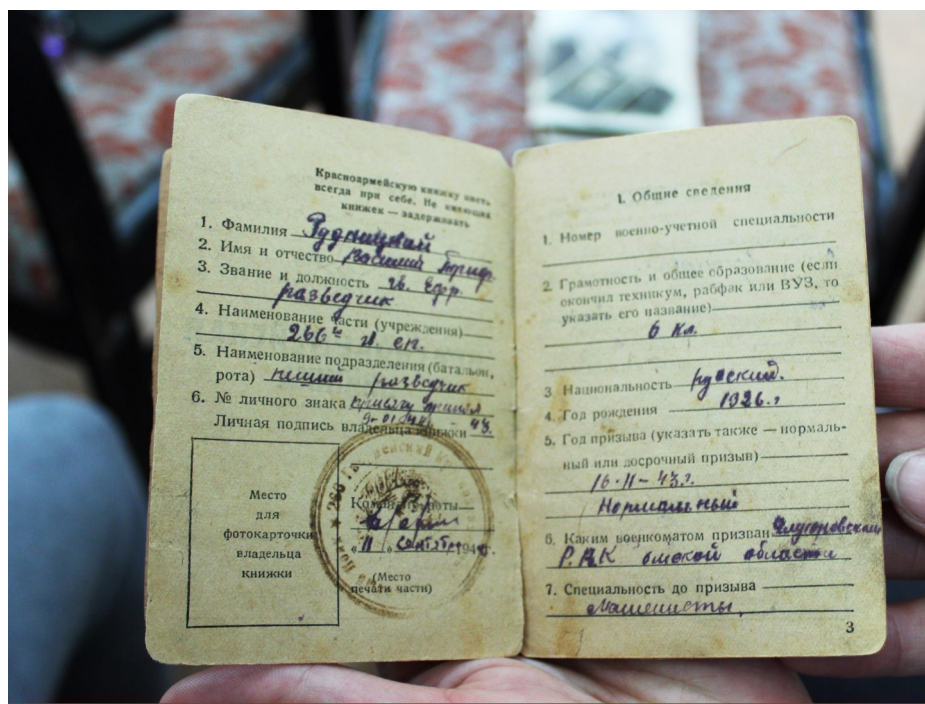 Красноармейскую книжку иметь
всегда при себе. Не имеющих
книжек — задерживать
1. Фамилия Рудницкий
2. Имя и отчество Василий Триф.
3. Звание и должность гв. Ефр.
разведчик
4. Наименование части (учреждения)
266й гв. сп.
5. Наименование подразделения (батальон,
рота) пеший разведчик
6. № личного знака принял
Личная подпись владельца книжки 43
Место
для
фотокарточки
владельца
книжки
Командир роты
"11" 194
(Место
печати части)
I. Общие сведения
1. Номер военно-учетной специальности
2. Грамотность и общее образование (если
окончил техникум, рабфак или ВУЗ, то
указать его название)
6 кл.
3 Национальность руский.
4. Год рождения 1926.г
5. Год призыва (указать также — нормаль-
ный или досрочный призыв)
16-11-43.г.
Нормальный
6. Каким военкоматом призван Ялуторовским
Р.В.К омской области
7. Специальность до призыва
Машинисты.
3